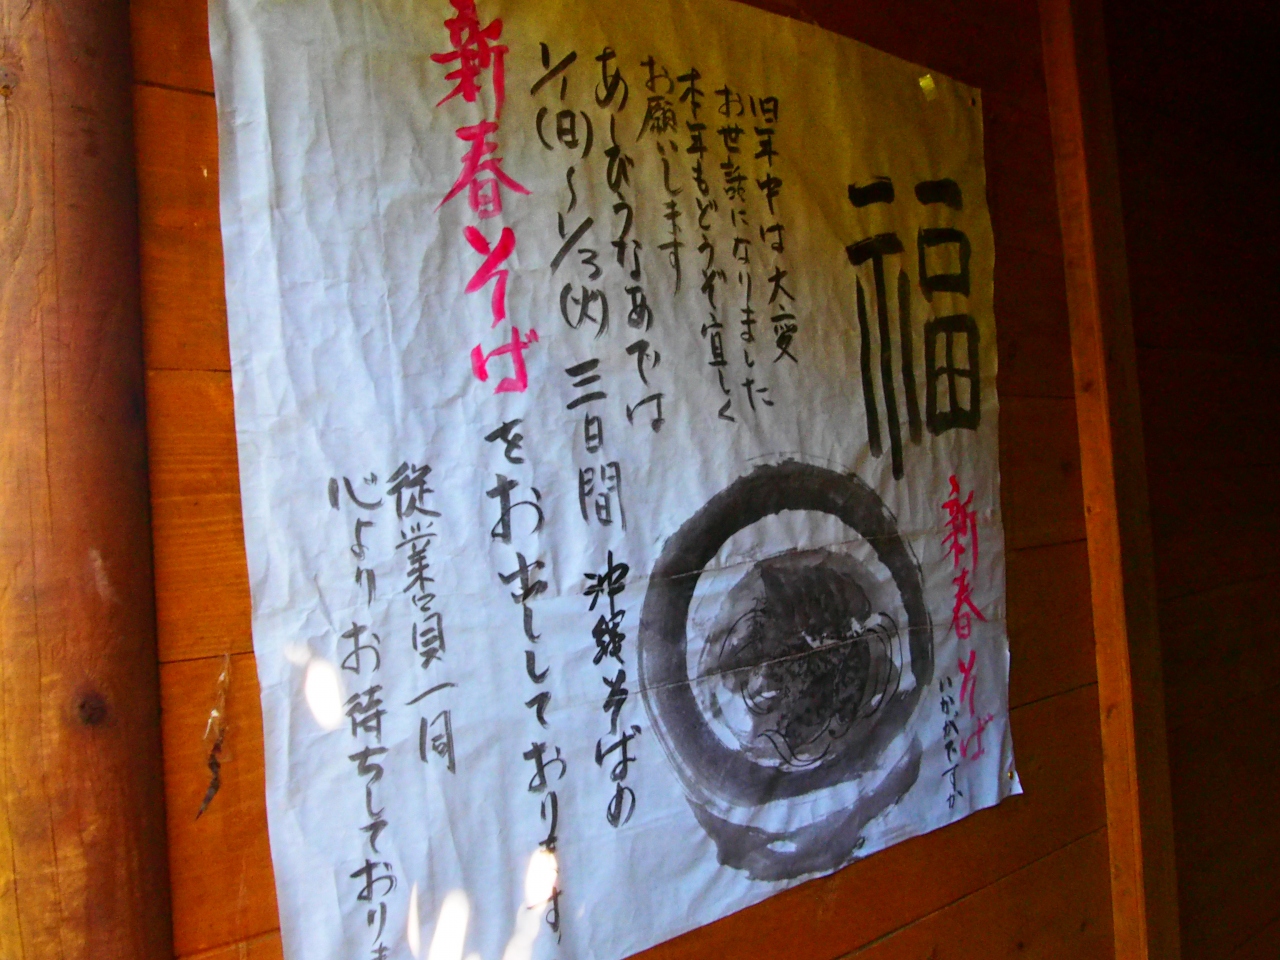 福
新春そば
いかがですか
旧年中は大変
お世話になりました
本年もどうぞ宜しく
お願いします
あしびうなあでは
1/1(日)~1/3(火)三日間 沖縄そばの
新春そばをお出ししております
従業員一同
心よりお待ちしておりま